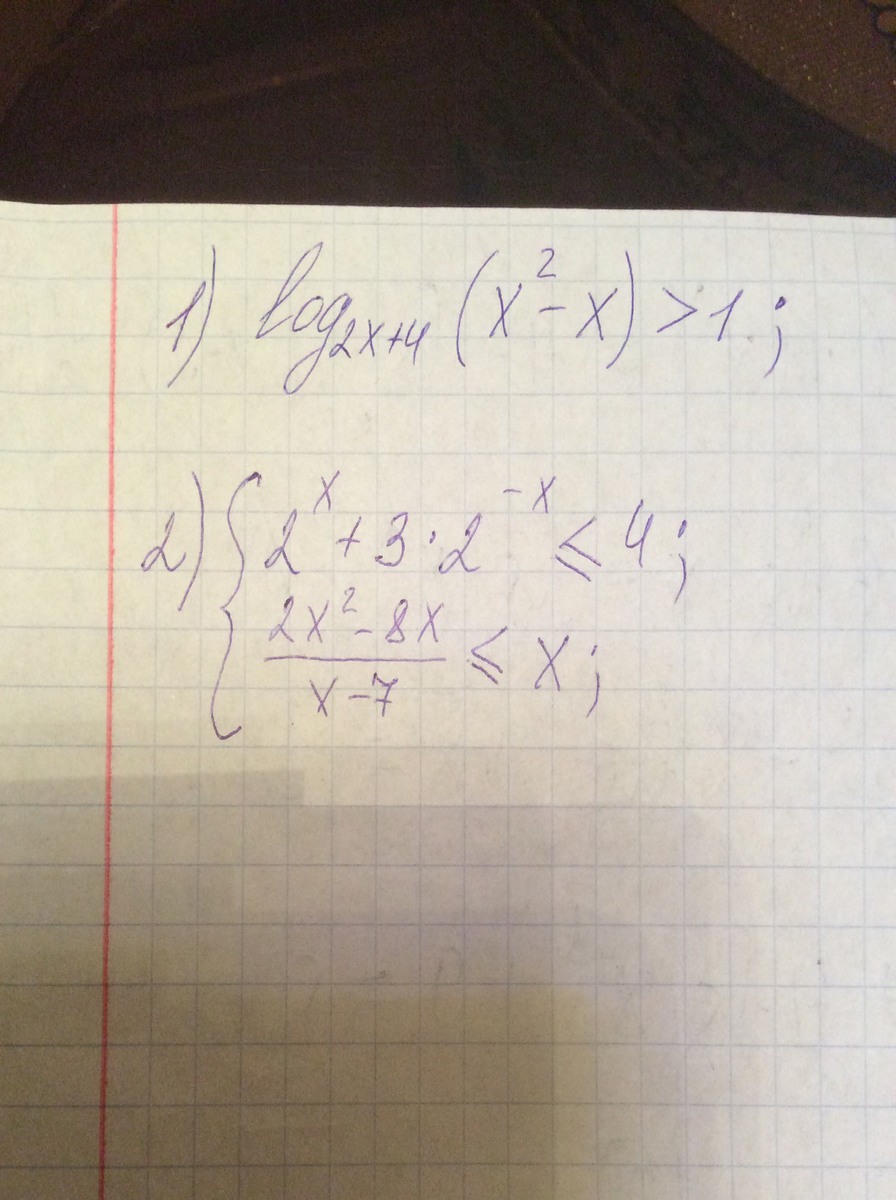 1) log₂ₓ₊₄ (x² - x) > 1 ;
2) { 2ˣ + 3 · 2⁻ˣ ≤ 4 ;
(2x² - 8x)/(x - 7) ≤ x ;